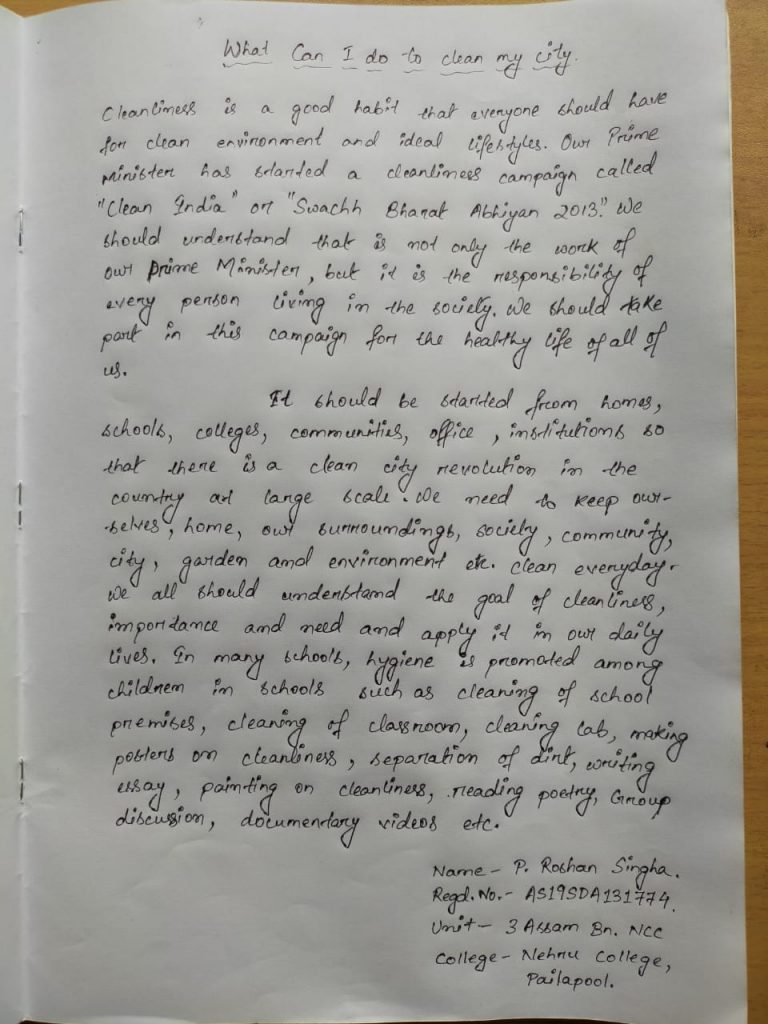 What Can I do to clean my city.
Cleanliness is a good habit that everyone should have
for clean environment and ideal lifestyles. Our Prime
Minister has started a cleanliness campaign called
"Clean India" or "Swachh Bharat Abhiyan 2013". We
should understand that is not only the work of
our Prime Minister, but it is the responsibility of
every person living in the society. We should take
part in this campaign for the healthy life of all of
us.
It should be started from homes,
schools, colleges, communities, office, institutions so
that there is a clean city revolution in the
country at large scale. We need to keep our-
selves, home, our surroundings, society, community,
city, garden and environment etc. clean everyday.
We all should understand the goal of cleanliness,
importance and need and apply it in our daily
lives. In many schools, hygiene is promoted among
children in schools such as cleaning of school
premises, cleaning of classroom, cleaning lab, making
posters on cleanliness, separation of dirt, writing
essay, painting on cleanliness, reading poetry, Group
discussion, documentary videos etc.
Name - P. Roshan Singha.
Regd. No. - AS19SDA131774.
Unit - 3 Assam Bn. NCC
College - Nehru College,
Pailapool.